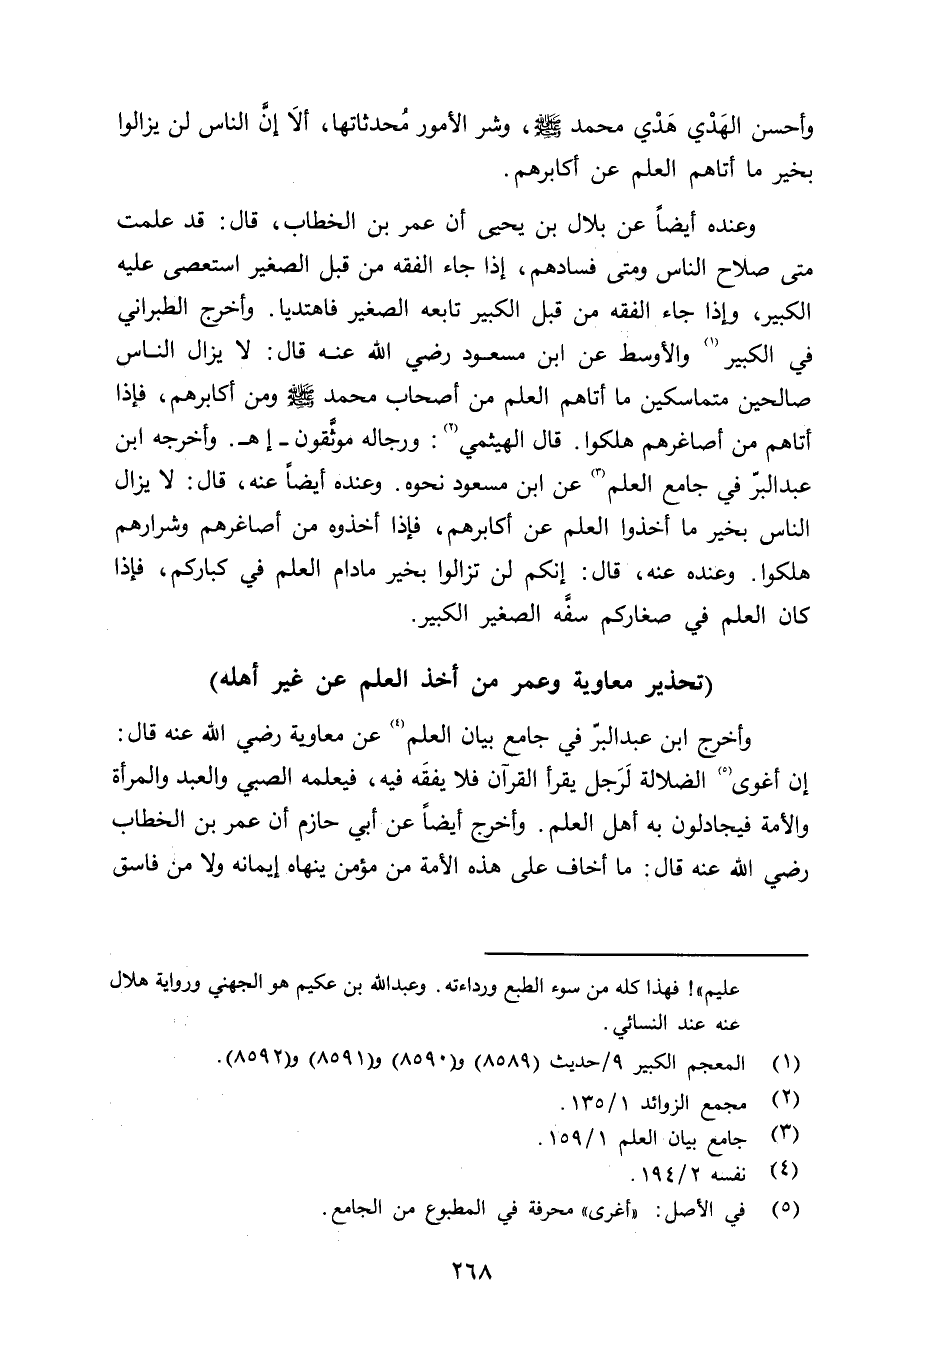 وأحسن الهَدْي هَدْي محمد ﷺ، وشر الأمور مُحدثاتها، ألَا إنَّ الناس لن يزالوا
بخير ما أتاهم العلم عن أكابرهم.
وعنده أيضاً عن بلال بن يحيى أن عمر بن الخطاب، قال: قد علمت
متى صلاح الناس ومتى فسادهم، إذا جاء الفقه من قبل الصغير استعصى عليه
الكبير، وإذا جاء الفقه من قبل الكبير تابعه الصغير فاهتديا. وأخرج الطبراني
في الكبير(١) والأوسط عن ابن مسعود رضي الله عنه قال: لا يزال الناس
صالحين متماسكين ما أتاهم العلم من أصحاب محمد ﷺ ومن أكابرهم، فإذا
أتاهم من أصاغرهم هلكوا. قال الهيثمي(٢): ورجاله موثَّقون ـ إ هـ. وأخرجه ابن
عبدالبرّ في جامع العلم(٣) عن ابن مسعود نحوه. وعنده أيضاً عنه، قال: لا يزال
الناس بخير ما أخذوا العلم عن أكابرهم، فإذا أخذوه من أصاغرهم وشرارهم
هلكوا. وعنده عنه، قال: إنكم لن تزالوا بخير مادام العلم في كباركم، فإذا
كان العلم في صغاركم سفَّه الصغير الكبير.
(تحذير معاوية وعمر من أخذ العلم عن غير أهله)
وأخرج ابن عبدالبرّ في جامع بيان العلم(٤) عن معاوية رضي الله عنه قال:
إن أغوى(٥) الضلالة لَرَجل يقرأ القرآن فلا يفقَه فيه، فيعلمه الصبي والعبد والمرأة
والأمة فيجادلون به أهل العلم. وأخرج أيضاً عن أبي حازم أن عمر بن الخطاب
رضي الله عنه قال: ما أخاف على هذه الأمة من مؤمن ينهاه إيمانه ولا من فاسق
عليم»! فهذا كله من سوء الطبع ورداءته. وعبدالله بن عكيم هو الجهني ورواية هلال
عنه عند النسائي.
(١) المعجم الكبير ٩/حديث (٨٥٨٩) و(٨٥٩٠) و(٨٥٩١) و(٨٥٩٢).
(٢) مجمع الزوائد ١/ ١٣٥.
(٣) جامع بيان العلم ١/ ١٥٩.
(٤) نفسه ٢/ ١٩٤.
(٥) في الأصل: «أغرى» محرفة في المطبوع من الجامع.
٢٦٨